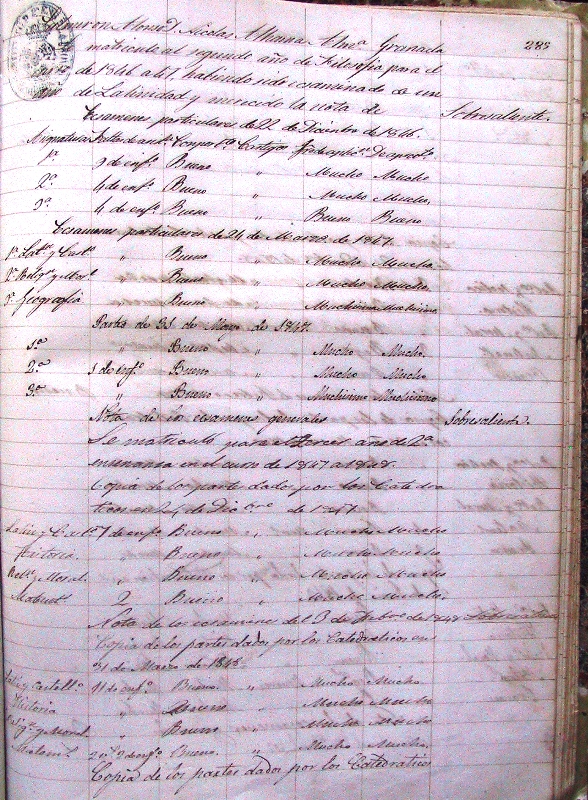 Nicolas Alhama Granada 283
matricula al segundo año de Filosofia para el
de 1846 a 47, habiendo sido ecsaminado de un
de Latinidad y merecido la nota de Sobresaliente.
Ecsamenes particulares de 22 de Diciembre de 1846.
Asignatura
1ª 3 de enfº Bueno " Mucho Mucho
2ª 4 de enfº Bueno " Mucho Mucho.
3ª 4 de enfº Bueno " Bueno Bueno
Ecsamenes particulares de 24 de Marzo de 1847.
1ª Latn. y Castª " Bueno " Mucho Mucho.
2ª Relign. y Morl. " Bueno " Mucho Mucho.
3ª Geografia " Bueno " Muchisimo Muchisimo
Parte de 31 de Mayo de 1847
1ª " Bueno " Mucho Mucho.
2ª 1 de enfº Bueno " Mucho Mucho.
3ª " Bueno " Muchisimo Muchisimo
Nota de los ecsamenes generales Sobresaliente.
Se matriculó para el tercer año de 2ª
enseñanza en el curso de 1847 a 1848.
Copia de los partes dados por los Catedra
ticos en de Dicbre de 1847
7 de enfº Bueno " Mucho Mucho
Historia. " Bueno " Mucho Mucho
Relª y Moral. " Bueno " Mucho Mucho
2 Bueno " Mucho Mucho.
Nota de los ecsamenes del 3 de Febrº de 1848 Sobresaliente
Copia de los partes dados por los Catedraticos en
31 de Marzo de 1848.
Latn. y Castellº 11 de enfº. Bueno. " Mucho Mucho
Historia " Bueno " Mucho Mucho
y Moral. " Bueno " Mucho Mucho
2 de enfº. Bueno. " Mucho Mucho.
Copia de los partes dados por los Catedraticos